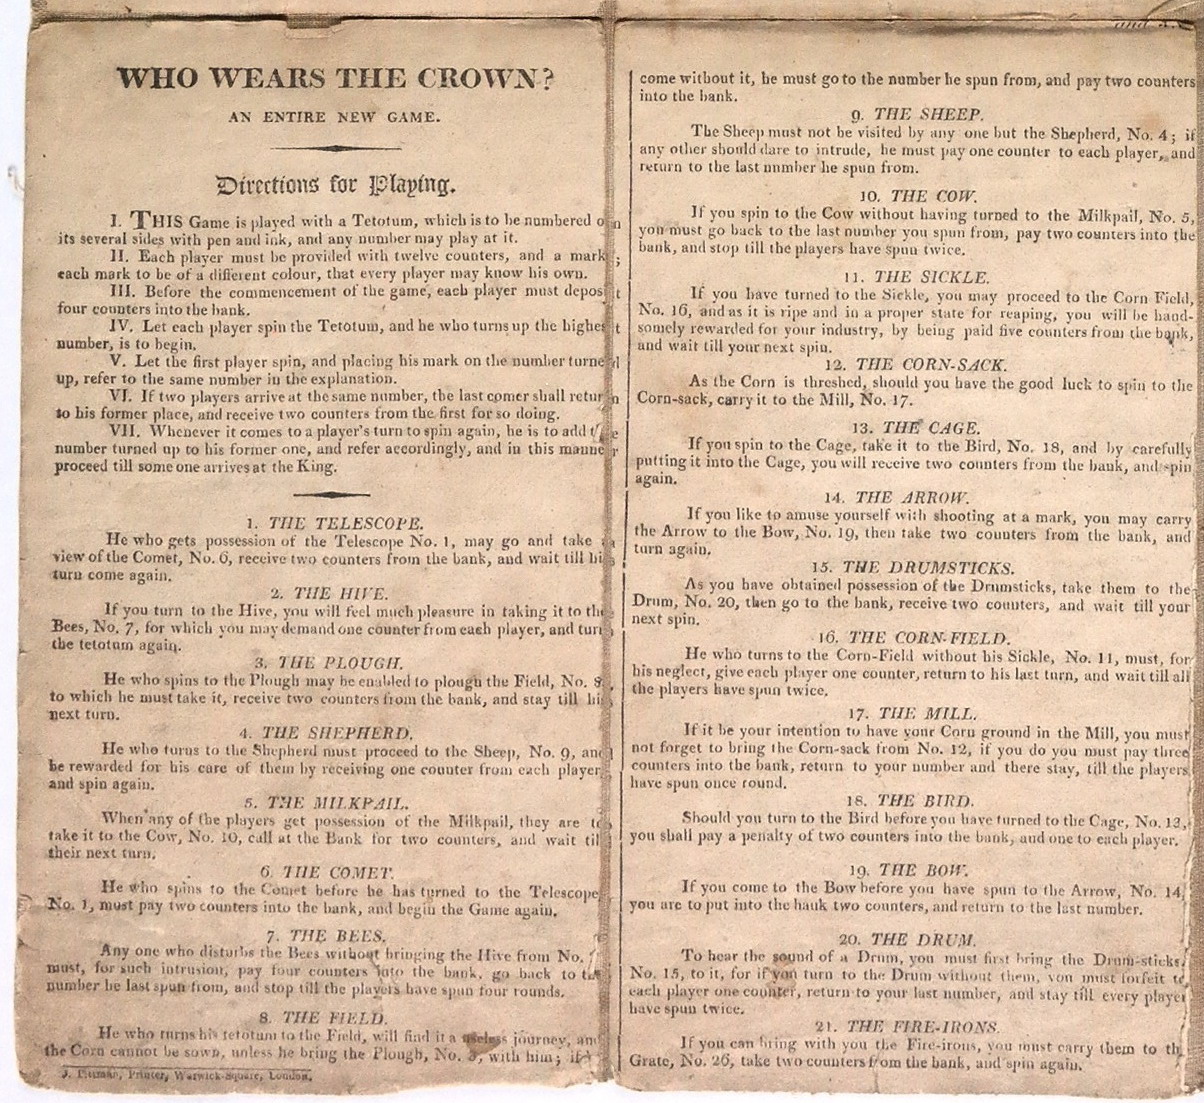 WHO WEARS THE CROWN?
AN ENTIRE NEW GAME.
Directions for Playing.
I. THIS Game is played with a Tetotum, which is to be numbered on
its several sides with pen and ink, and any number may play at it.
II. Each player must be provided with twelve counters, and a mark;
each mark to be of a different colour, that every player may know his own.
III. Before the commencement of the game, each player must deposit
four counters into the bank.
IV. Let each player spin the Tetotum, and he who turns up the highest
number, is to begin.
V. Let the first player spin, and placing his mark on the number turned
up, refer to the same number in the explanation.
VI. If two players arrive at the same number, the last comer shall return
to his former place, and receive two counters from the first for so doing.
VII. Whenever it comes to a player's turn to spin again, he is to add the
number turned up to his former one, and refer accordingly, and in this manner
proceed till some one arrives at the King.
1. THE TELESCOPE.
He who gets possession of the Telescope No. 1, may go and take a
view of the Comet, No. 6, receive two counters from the bank, and wait till his
turn come again.
2. THE HIVE.
If you turn to the Hive, you will feel much pleasure in taking it to the
Bees, No. 7, for which you may demand one counter from each player, and turn
the tetotum again.
3. THE PLOUGH.
He who spins to the Plough may be enabled to plough the Field, No. 8,
to which he must take it, receive two counters from the bank, and stay till his
next turn.
4. THE SHEPHERD.
He who turns to the Shepherd must proceed to the Sheep, No. 9, and
be rewarded for his care of them by receiving one counter from each player
and spin again.
5. THE MILKPAIL.
When any of the players get possession of the Milkpail, they are to
take it to the Cow, No. 10, call at the Bank for two counters, and wait till
their next turn.
6. THE COMET.
He who spins to the Comet before he has turned to the Telescope
No. 1, must pay two counters into the bank, and begin the Game again.
7. THE BEES.
Any one who disturbs the Bees without bringing the Hive from No.
must, for such intrusion, pay four counters into the bank, go back to the
number he last spun from, and stop till the players have spun four rounds.
8. THE FIELD.
He who turns his tetotum to the Field, will find it a useless journey, and
the Corn cannot be sown, unless he bring the Plough, No. 3, with him; if
J. Pittman, Printer, Warwick-Square, London.
come without it, he must go to the number he spun from, and pay two counters
into the bank.
9. THE SHEEP.
The Sheep must not be visited by any one but the Shepherd, No. 4; if
any other should dare to intrude, he must pay one counter to each player, and
return to the last number he spun from.
10. THE COW.
If you spin to the Cow without having turned to the Milkpail, No. 5,
you must go back to the last number you spun from, pay two counters into the
bank, and stop till the players have spun twice.
11. THE SICKLE.
If you have turned to the Sickle, you may proceed to the Corn Field,
No. 16, and as it is ripe and in a proper state for reaping, you will be hand-
somely rewarded for your industry, by being paid five counters from the bank,
and wait till your next spin.
12. THE CORN-SACK.
As the Corn is threshed, should you have the good luck to spin to the
Corn-sack, carry it to the Mill, No. 17.
13. THE CAGE.
If you spin to the Cage, take it to the Bird, No. 18, and by carefully
putting it into the Cage, you will receive two counters from the bank, and spin
again.
14. THE ARROW.
If you like to amuse yourself with shooting at a mark, you may carry
the Arrow to the Bow, No. 19, then take two counters from the bank, and
turn again.
15. THE DRUMSTICKS.
As you have obtained possession of the Drumsticks, take them to the
Drum, No. 20, then go to the bank, receive two counters, and wait till your
next spin.
16. THE CORN-FIELD.
He who turns to the Corn-Field without his Sickle, No. 11, must, for
his neglect, give each player one counter, return to his last turn, and wait till all
the players have spun twice.
17. THE MILL.
If it be your intention to have your Corn ground in the Mill, you must
not forget to bring the Corn-sack from No. 12, if you do you must pay three
counters into the bank, return to your number and there stay, till the players
have spun once round.
18. THE BIRD.
Should you turn to the Bird before you have turned to the Cage, No. 13,
you shall pay a penalty of two counters into the bank, and one to each player.
19. THE BOW.
If you come to the Bow before you have spun to the Arrow, No. 14,
you are to put into the bank two counters, and return to the last number.
20. THE DRUM.
To hear the sound of a Drum, you must first bring the Drum-sticks,
No. 15, to it, for if you turn to the Drum without them, you must forfeit to
each player one counter, return to your last number, and stay till every player
have spun twice.
21. THE FIRE-IRONS.
If you can bring with you the Fire-irons, you must carry them to th
Grate, No. 26, take two counters from the bank, and spin again.